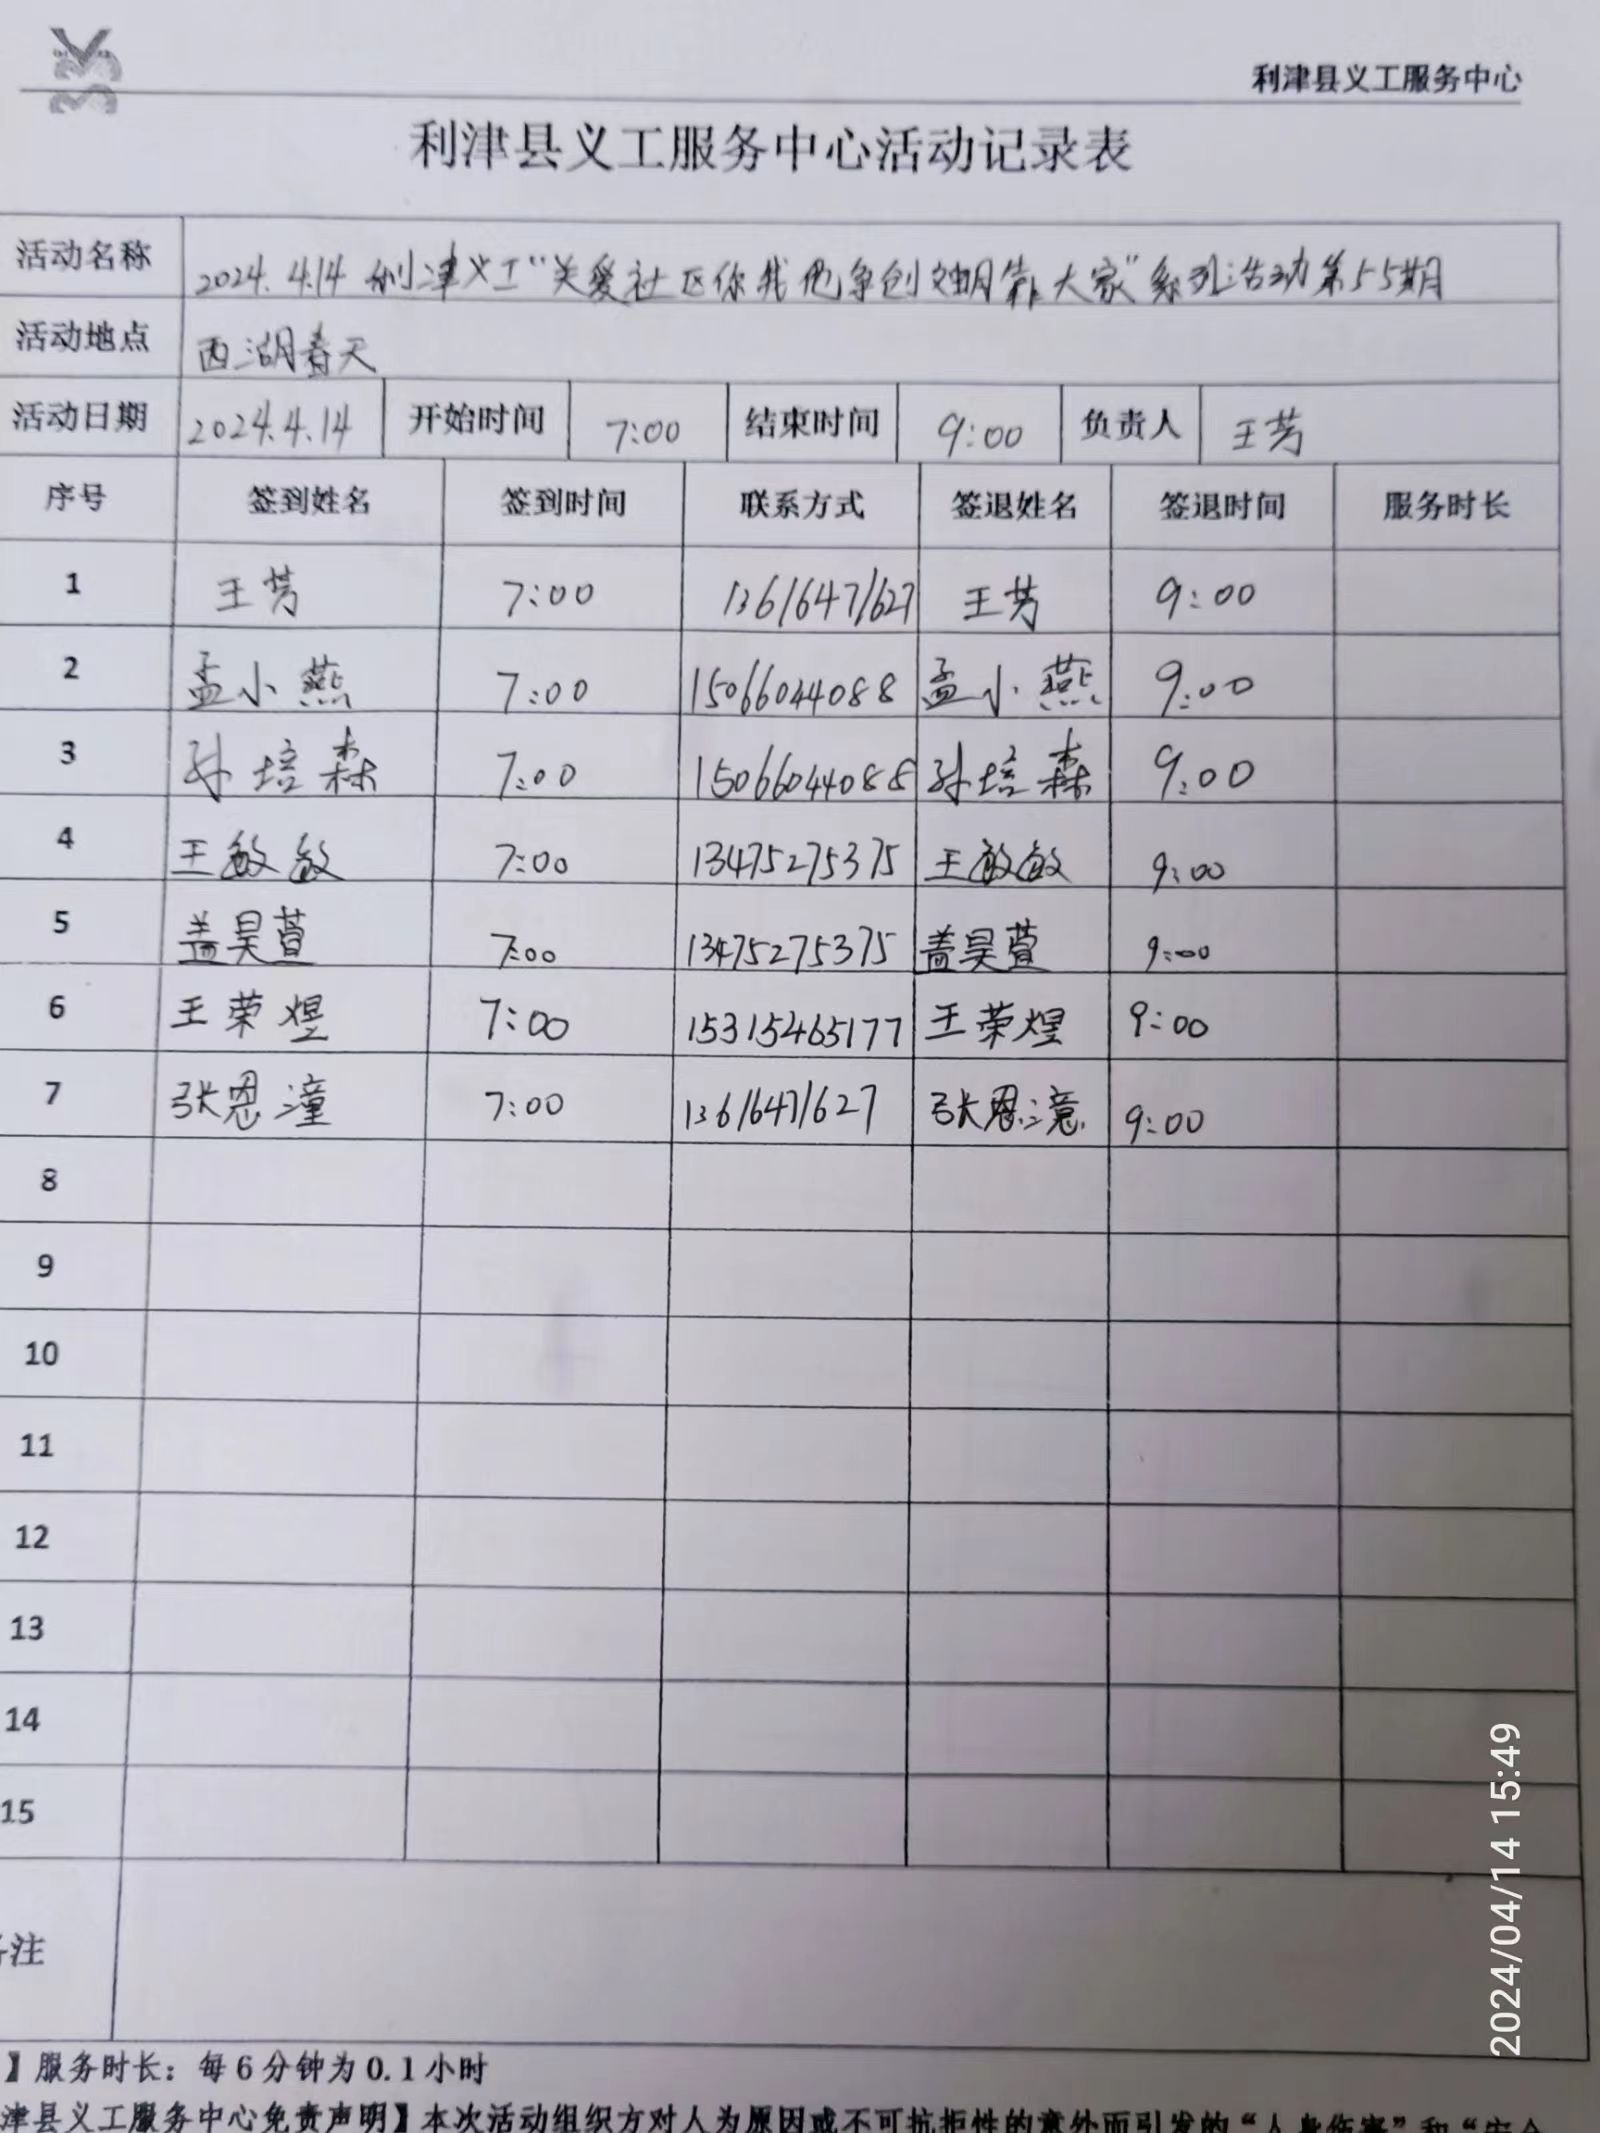 利津县义工服务中心
利津县义工服务中心活动记录表
活动名称 2024.4.14 利津义工“关爱社区你我他争创文明靠大家”系列活动第55期
活动地点 西湖春天
活动日期 2024.4.14 开始时间 7:00 结束时间 9:00 负责人 王芳
序号 签到姓名 签到时间 联系方式 签退姓名 签退时间 服务时长
1 王芳 7:00 13616471627 王芳 9:00
2 孟小燕 7:00 15066044088 孟小燕 9:00
3 孙培森 7:00 15066044088 孙培森 9:00
4 王敏敏 7:00 13475275375 王敏敏 9:00
5 盖昊萱 7:00 13475275375 盖昊萱 9:00
6 王荣煜 7:00 15315465177 王荣煜 9:00
7 张恩潼 7:00 13616471627 张恩 9:00
8
9
10
11
12
13
14
15
注
】服务时长：每6分钟为0.1小时
津县义工服务中心免责声明】本次活动组织方对人为原因或不可抗拒性的意外而引发的“人身伤害”和“安全
2024/04/14 15:49